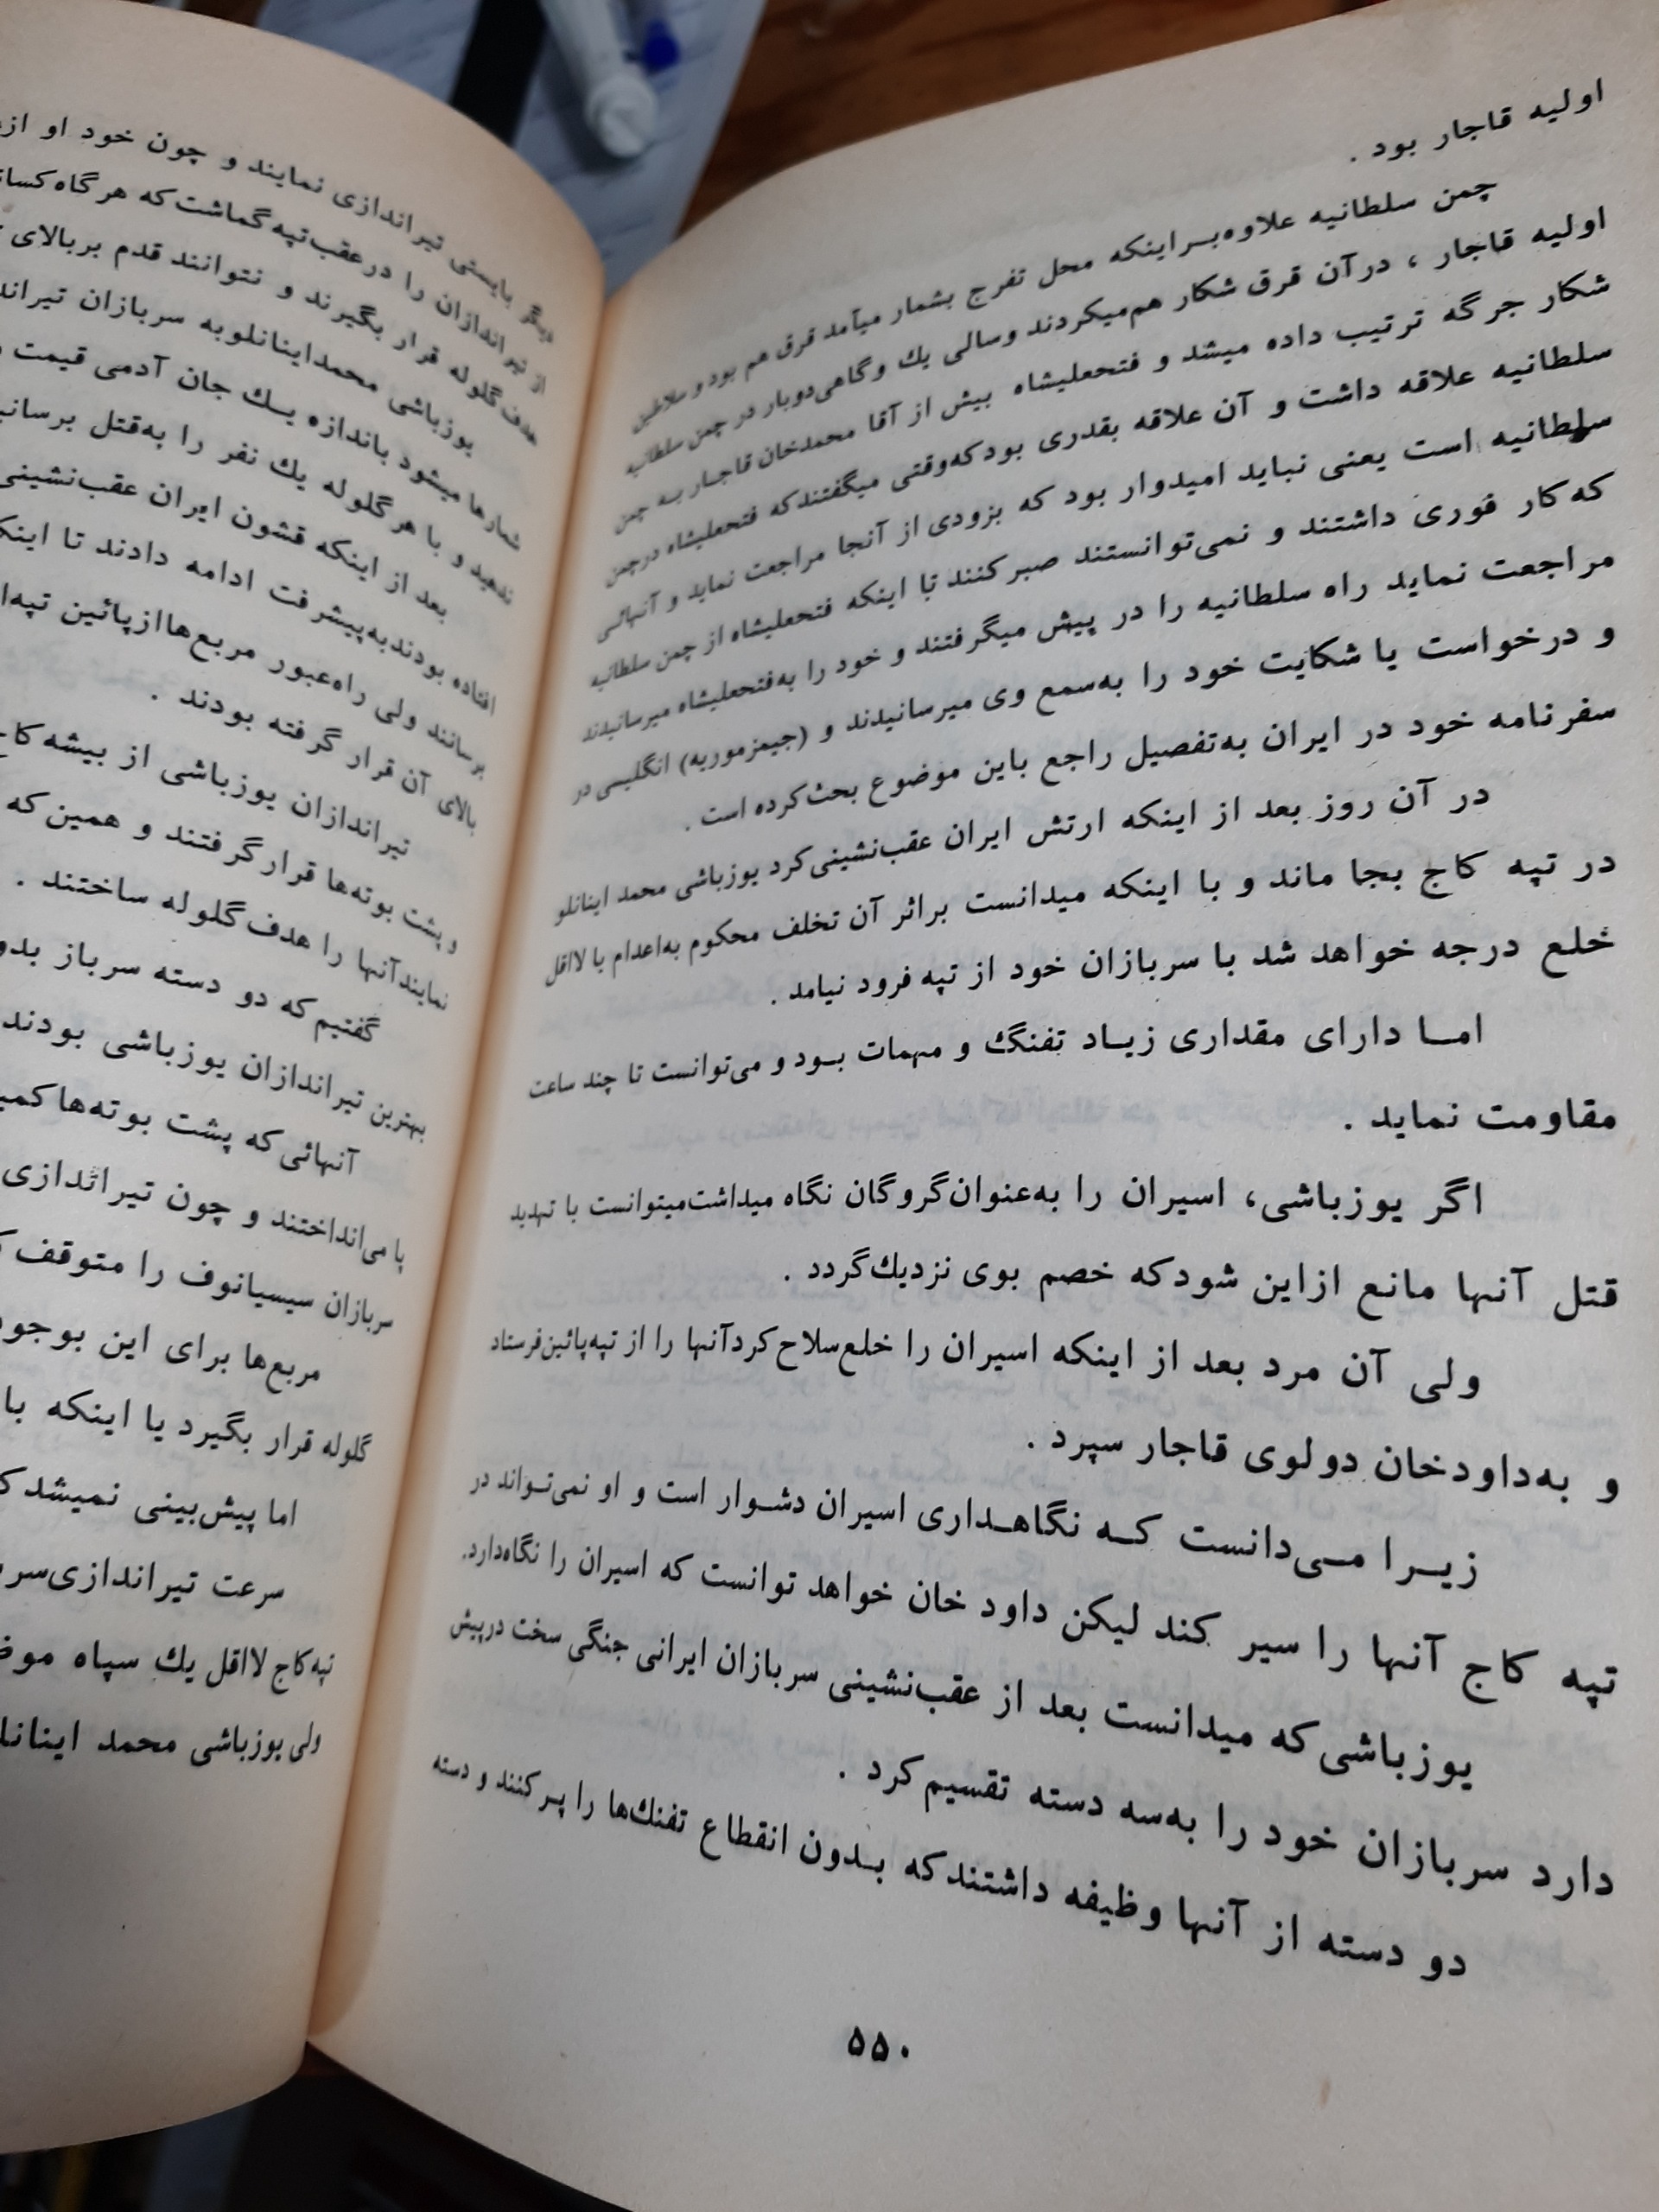 اولیه قاجار بود .
چمن سلطانیه علاوه‌بـر‌اینکه محل تفرج بشمار میآمد قرق هم بود و سلاطین
اولیه قاجار ، درآن قرق شکار هم‌میکردند وسالی یك وگاهی‌دوبار در چمن سلطانیه
شکار جرگه ترتیب داده میشد و فتحعلیشاه بیش از آقا محمدخان قاجـار بـه چمن
سلطانیه علاقه داشت و آن علاقه بقدری بودکه‌وقتی میگفتندکه فتحعلیشاه درچمن
سلطانیه است یعنی نباید امیدوار بود که بزودی از آنجا مراجعت نماید و آنهائـی
که‌کار فوری داشتند و نمی‌توانستند صبرکنند تا اینکه فتحعلیشاه از چمن سلطانیه
مراجعت نماید راه سلطانیه را در پیش میگرفتند و خود را به‌فتحعلیشاه میرسانیدند
و درخواست یا شکایت خود را به‌سمع وی میرسانیدند و (جیمزموریه) انگلیسی در
سفرنامه خود در ایران به‌تفصیل راجع باین موضوع بحث‌کرده است .
در آن روز بعد از اینکه ارتش ایران عقب‌نشینی‌کرد یوزباشی محمد اینانلو
در تپه کاج بجا ماند و با اینکه میدانست براثر آن تخلف محکوم به‌اعدام یا لااقل
خلـع درجه خواهد شد با سربازان خود از تپه فرود نیامد .
امـا دارای مقداری زیـاد تفنگ و مهمات بـود و می‌توانست تا چند ساعت
مقاومت نماید .
اگر یوزباشی، اسیران را به‌عنوان‌گروگان نگاه میداشت‌میتوانست با تهدید
قتل آنها مانـع ازاین شودکه خصم بوی نزدیك‌گردد .
ولی آن مرد بعد از اینکه اسیران را خلع‌سلاح‌کردآنها را از تپه‌پائین‌فرستاد
و به‌داودخان دولوی قاجار سپرد .
زیـرا مـی‌دانست کـه نگاهـداری اسیران دشـوار است و او نمی‌تـواند در
تپه کاج آنها را سیر کند لیکن داود خان خواهد توانست که اسیران را نگاه‌دارد.
یوزباشی‌که میدانست بعد از عقب‌نشینی سربازان ایرانی جنگی سخت درپیش
دارد سربازان خود را به‌سه دسته تقسیم‌کرد .
دو دسته از آنها وظیفه داشتندکه بـدون انقطاع تفنك‌ها را پـر کنند و دسته
۵۵۰
دیگر بایستی تیراندازی نمایند و چون خود او
از تیراندازان را درعقب‌تپه‌گماشت‌که هرگاه
هدف‌گلوله قرار بگیرند و نتوانند قدم بربالای
یوزباشی محمداینانلوبه سربازان
شمارها میشود باندازه یـك جان آدمی قیمت
ندهید و با هرگلوله یك نفر را به‌قتل
بعد از اینکه قشون ایران عقب‌نشینی
افتاده بودندبه‌پیشرفت ادامه دادند تا
برسانند ولی راه‌عبور مربع‌هاازپائین
بالای آن قرار گرفته بودند .
تیراندازان یوزباشی از بیشه
و پشت بوته‌ها قرارگرفتند و همین‌که
نمایندآنها را هدف‌گلوله ساختند .
گفتیم که دو دسته سرباز
بهترین تیراندازان یوزباشی بودند
آنهائی که پشت بوته‌ها
پا می‌انداختند و چون تیراندازی
سربازان سیسیانوف را متوقف
مربع‌ها برای این
گلوله قرار بگیرد یا اینکه با
اما پیش‌بینی نمیشد
سرعت
تپه‌کاج لااقل یك سپاه
ولی یوزباشی محمد